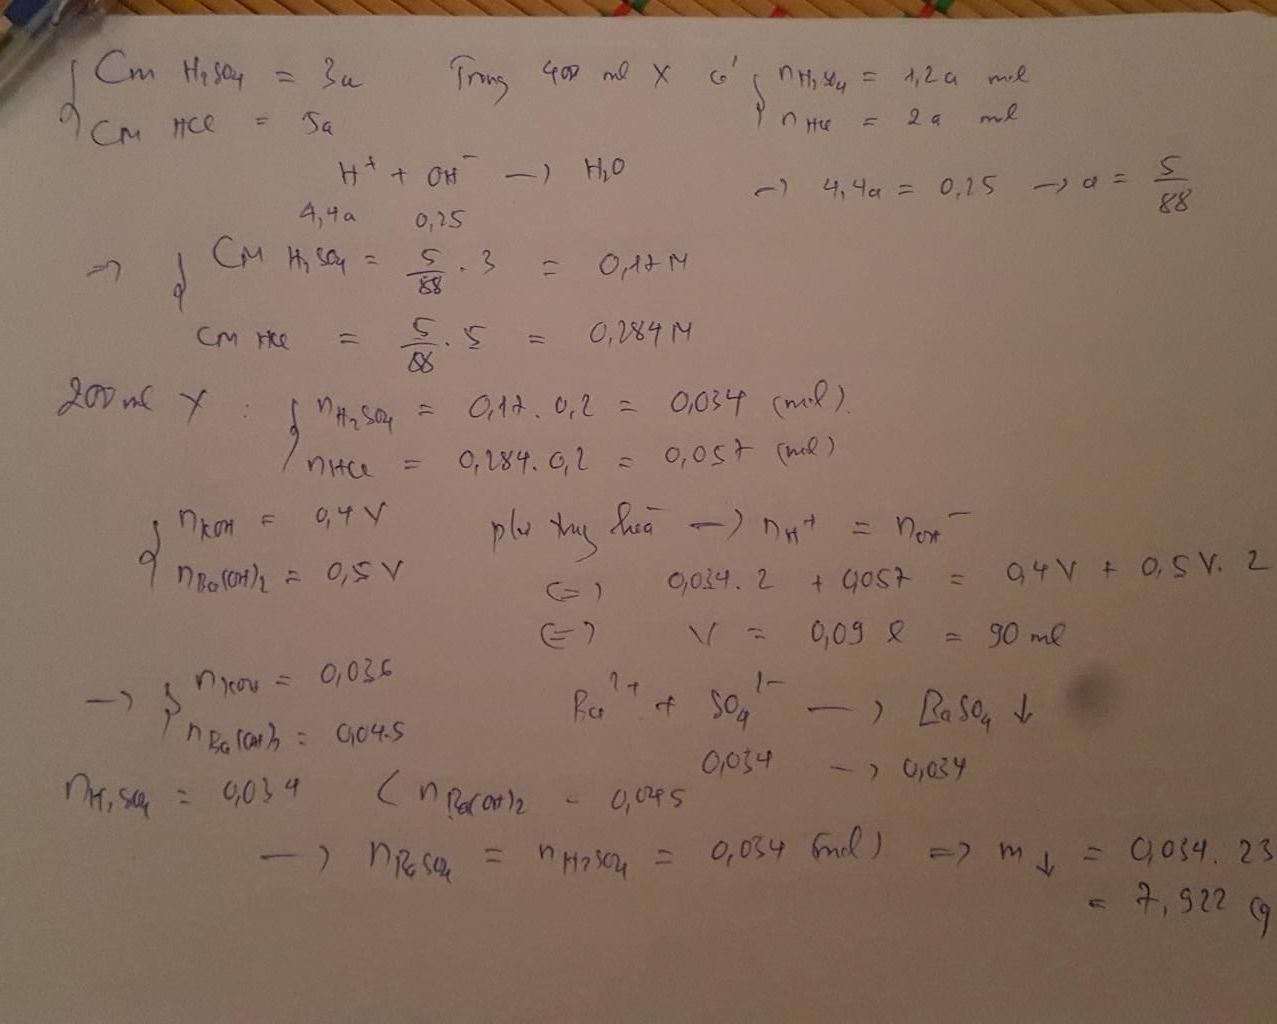 { CM H₂SO₄ = 3a Trong 400 ml X có { nH₂SO₄ = 1,2a mol
CM HCl = 5a nHCl = 2a mol
H⁺ + OH⁻ → H₂O → 4,4a = 0,25 → a = 5/88
4,4a 0,25
=> { CM H₂SO₄ = 5/88 . 3 = 0,17M
CM HCl = 5/88 . 5 = 0,284M
200 ml X : { nH₂SO₄ = 0,17. 0,2 = 0,034 (mol).
nHCl = 0,284. 0,2 = 0,057 (mol)
{ nKOH = 0,4V pứ trung hoà → nH⁺ = nOH⁻
nBa(OH)₂ = 0,5V (=) 0,034. 2 + 0,057 = 0,4V + 0,5V. 2
(=) V = 0,09 l = 90 ml
→ { nKOH = 0,036 Ba²⁺ + SO₄²⁻ → BaSO₄ ↓
nBa(OH)₂ = 0,045 0,034 → 0,034
nH₂SO₄ = 0,034 < nBa(OH)₂ = 0,045
→ nBaSO₄ = nH₂SO₄ = 0,034 (mol) => m↓ = 0,034. 23
= 7,922 (g